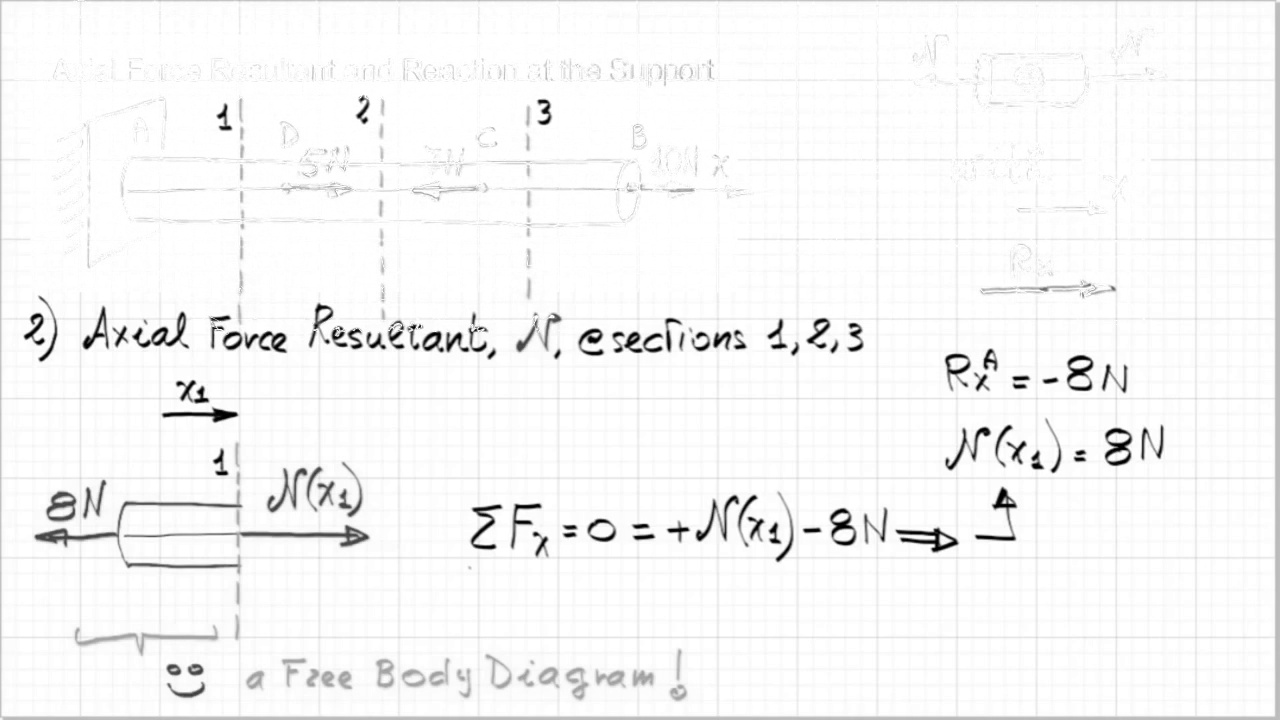 Axial Force Resultant and Reaction at the Support
N N
1 2 3
A D C B
5N 10N x
x
Rx
2) Axial Force Resultant, N, @ sections 1, 2, 3
x₁
RxᴬA = -8N
N(x₁) = 8N
1
8N N(x₁)
ΣFx = 0 = +N(x₁) - 8N ⇒
a Free Body Diagram!